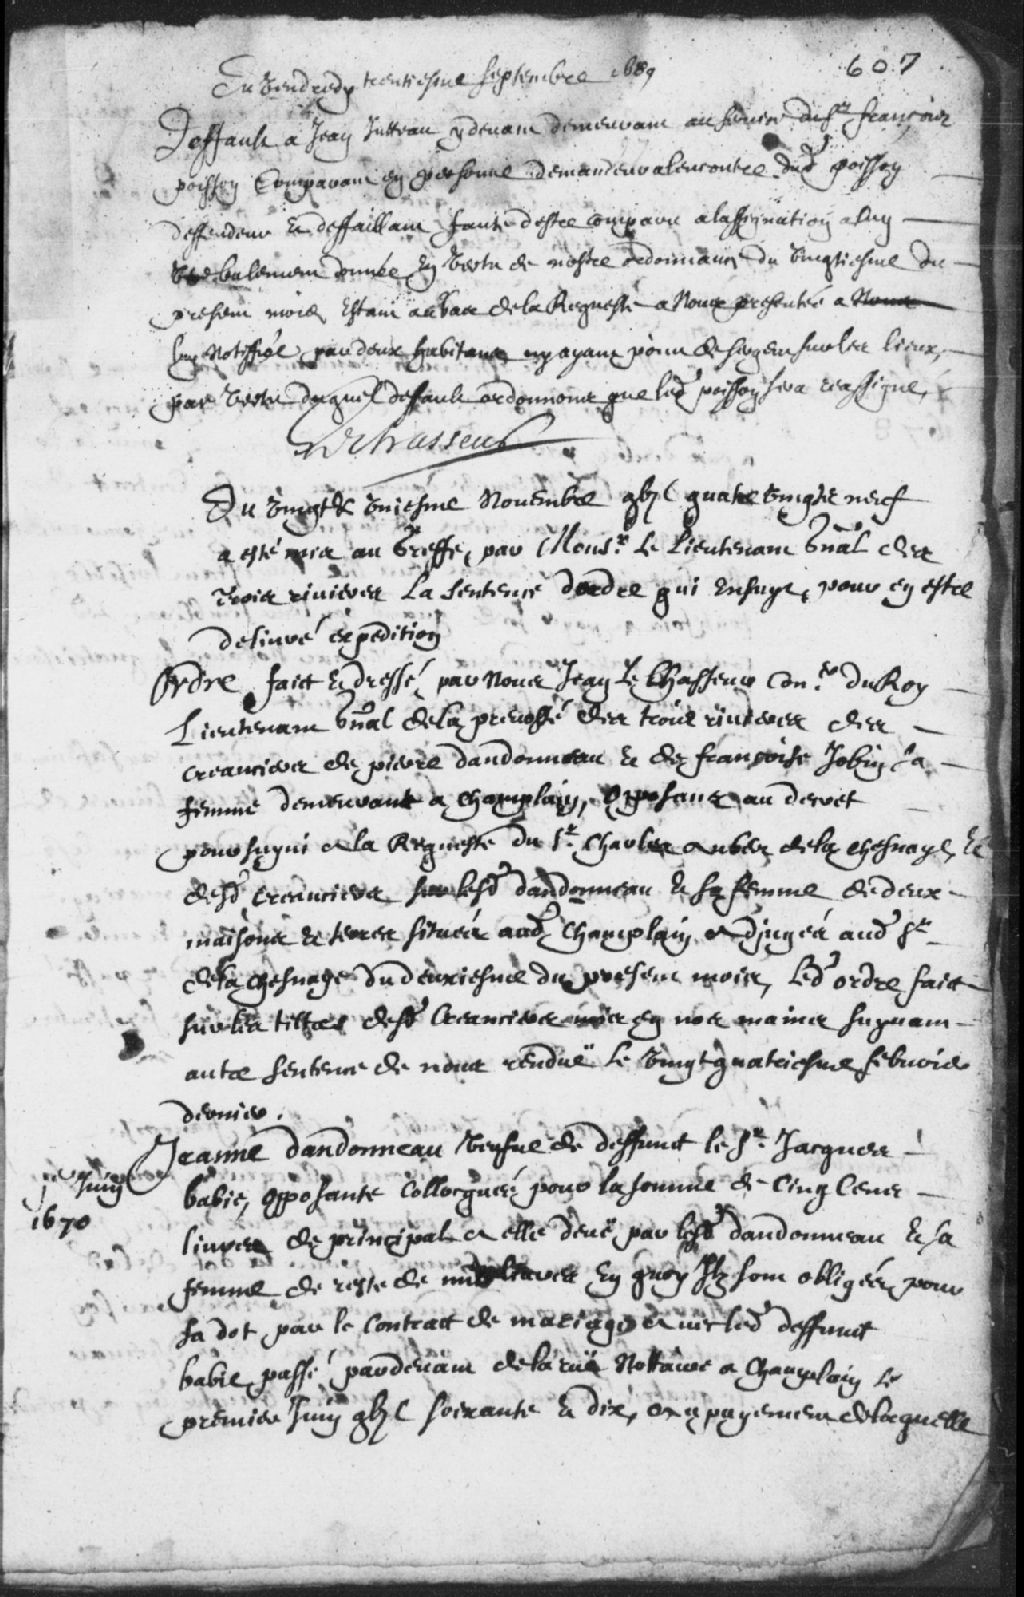 607
Du Vendredy trentiesme septembre 1689
Deffault a Jean Juttrau cydevant demeurant au service du Sr. françois
poisson Comparant en personne demandeur alencontre dud poisson
deffendeur & deffaillant faute destre comparu a lassignation a luy
verbalement donnée en vertu de nostre ordonnance du vingtiesme du
present mois Estant au bas de la Requeste a Nous presentée a
luy Nottiffiée par deux habitans ny ayant point de sergent sur les lieux,
par vertu duquel deffault ordonnons que led poisson sera reassigné,
Le Chasseur
Du Vingt & Uniesme Novembre gbjC quatre vingts neuf
a esté mis au Greffe, par Monsr. Le Lieutenant Gnal des
trois rivieres La sentence dordre qui Ensuyt, pour en estre
delivré expedition
Ordre faict & dressé, par Nous Jean Le Chasseur Conr. du Roy
Lieutenant Gnal de la prevosté des trois rivieres des
creanciers de pierre dandonneau & de françoise Jobin sa
femme demeurant a Champlain, opposans au decret
poursuyvi a la Requeste du Sr. Charles aubert de la chesnaye, &
desd creanciers sur lesd dandonneau & sa femme de deux
maisons & terres situées aud Champlain adjugés aud Sr
de la chesnaye du deuxiesme du present mois, Led ordre faict
sur les tiltres desd Creanciers mis en nos mains suyvant
autre sentence de nous rendüe le vingt quatriesme febvrier
dernier.
Jeanne dandonneau Vefve de deffunct le Sr. Jacques
babie, opposante Collocquée pour la somme de Cinq Cens
1er Juin
1670
livres de principal a elle deüe par lesd dandonneau & sa
femme de reste de mil livres En quoy Ils sont obligés pour
sa dot par le Contract de mariage avec led deffunct
babie passé pardevant de la rüe Nottaire a Champlain le
premier Juin gbjC soixante & dix, au payement de laquelle